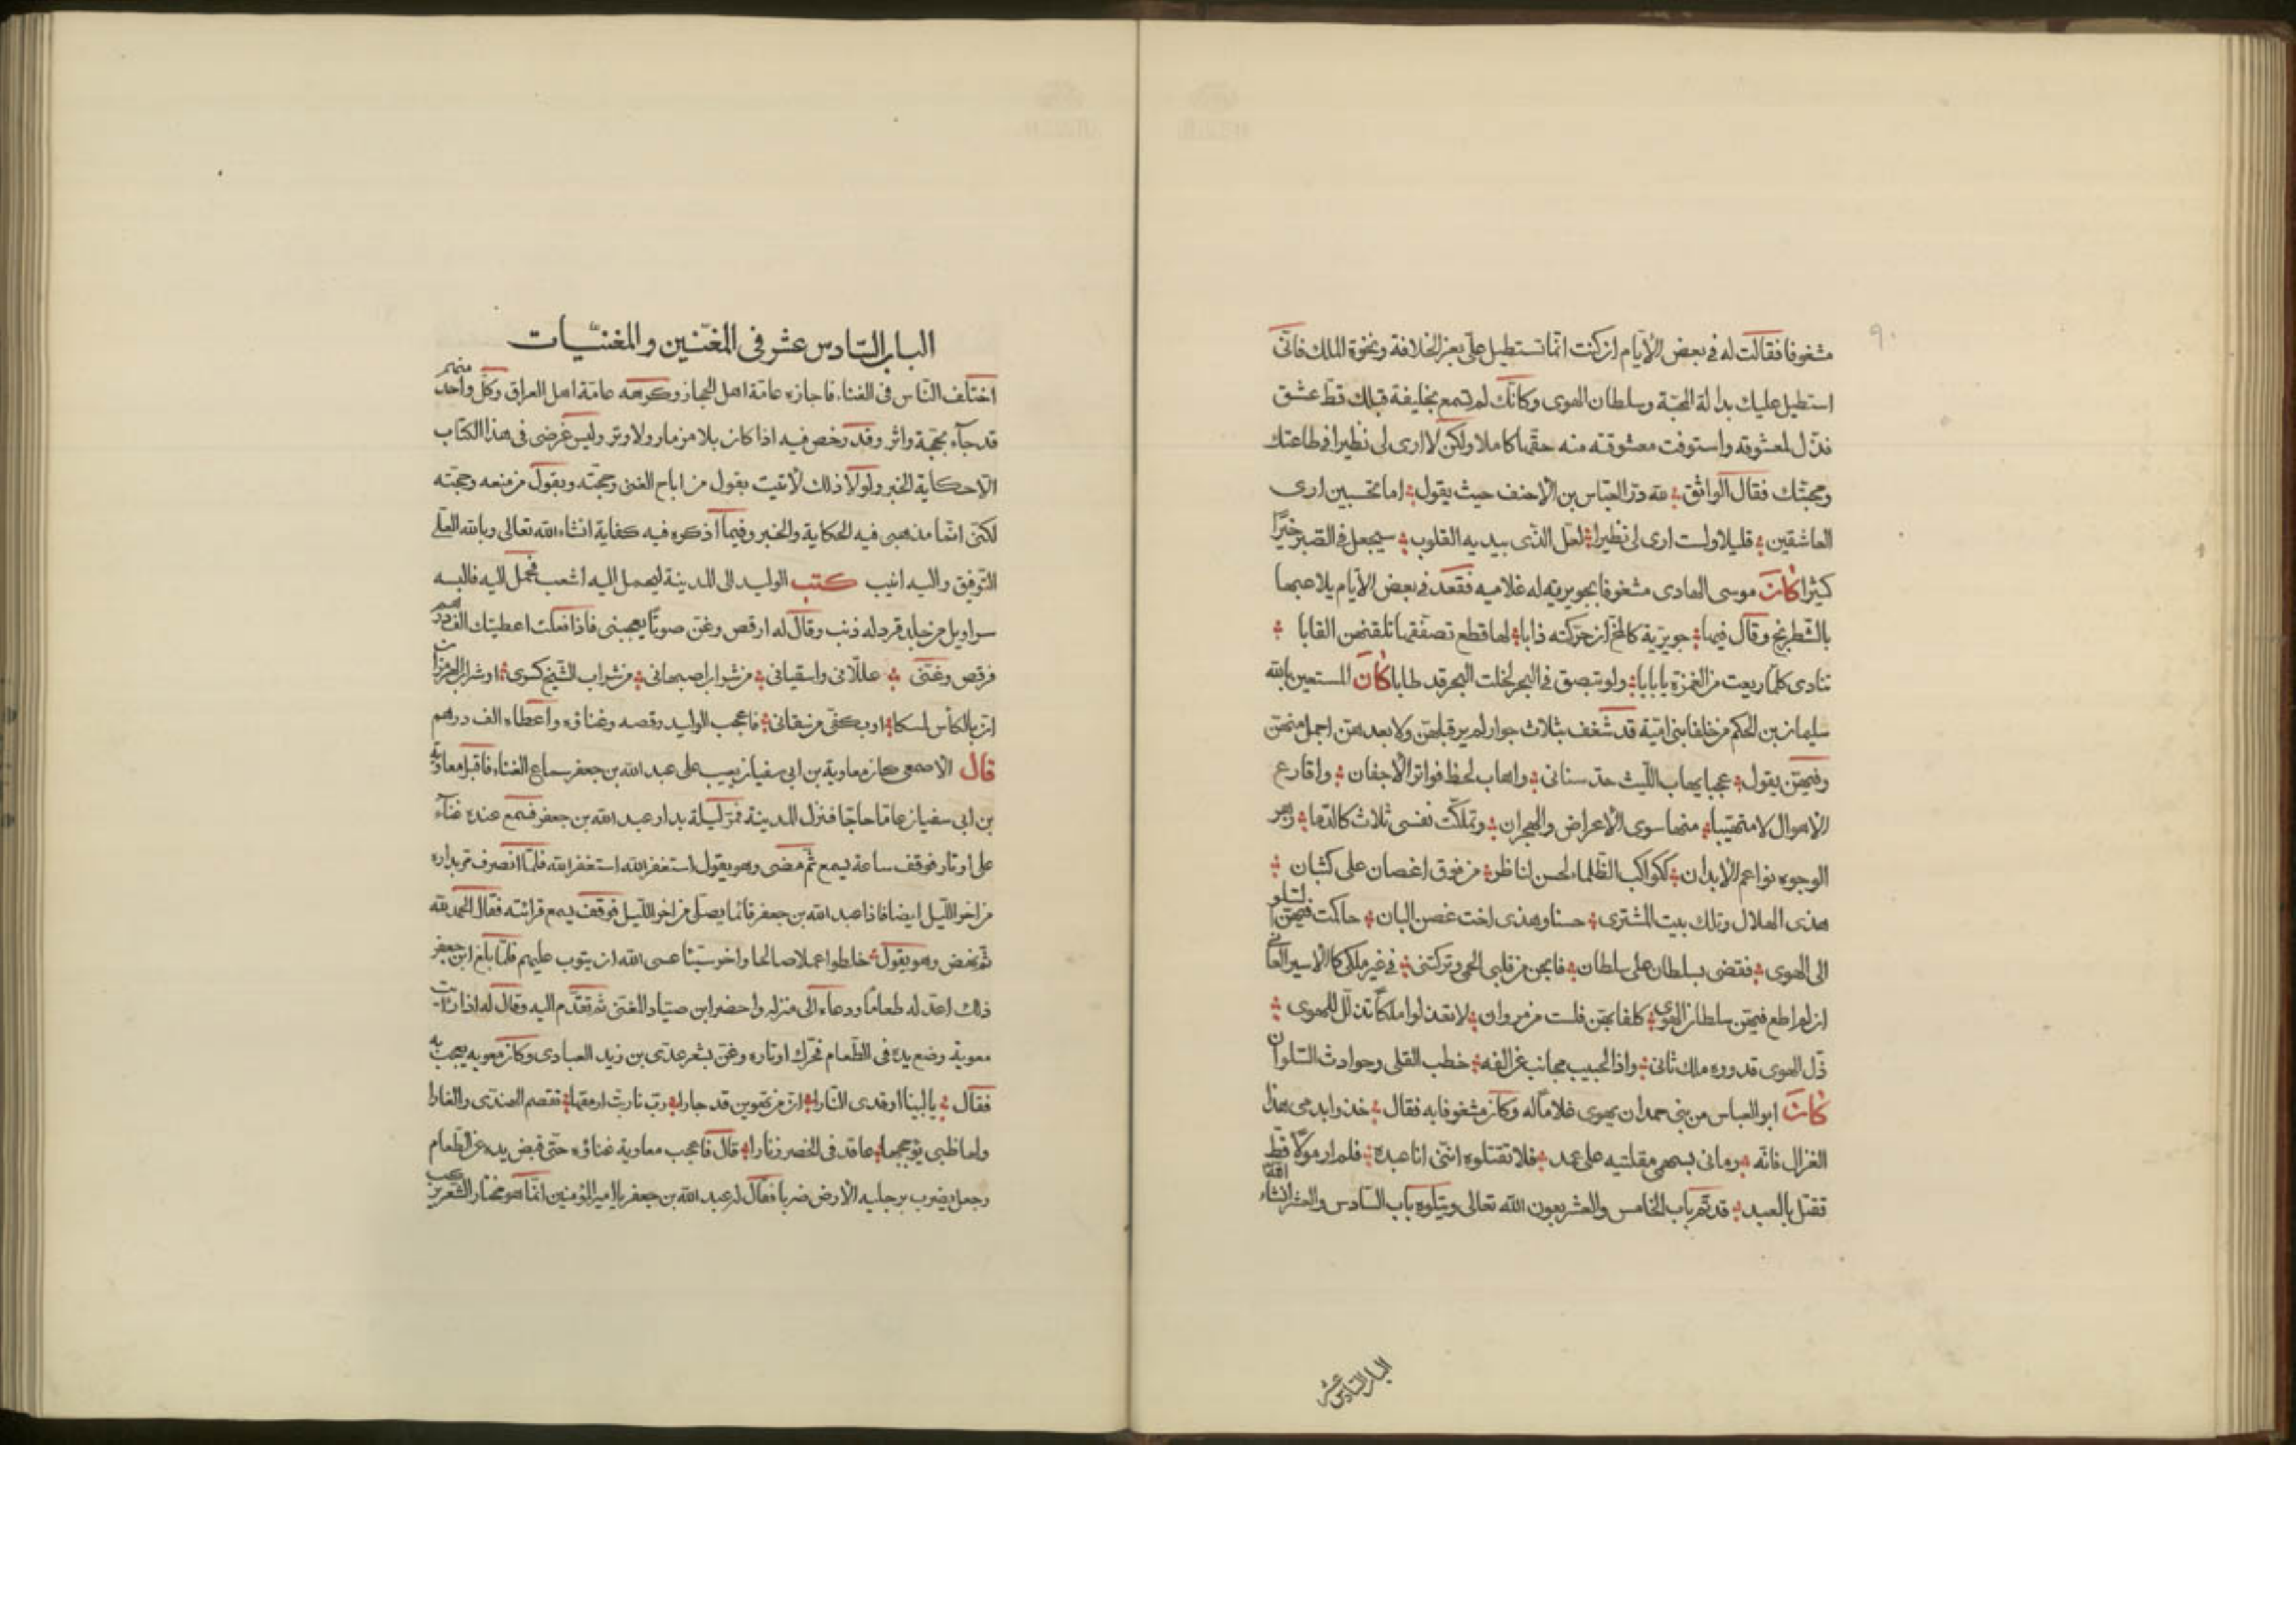 ٩٠
مشغوفا فقالت له فى بعض الأيام ان كنت انما تستطيل علىّ بعز الخلافة ونخوة الملك فانى
استطيل عليك بدالة المحبة وسلطان الهوى وكانك لم تسمع بخليفة قبلك قط عشق
فذل لمعشوقه واستوفت معشوقته منه حقها كاملا ولكن لا ارى لى نظيرا فى طاعتك
ومحبتك فقال الواثق لله در العباس بن الاحنف حيث يقول اما تحسبين ارى
العاشقين قليلا ولست ارى لى نظيرا لعل الذى بيديه القلوب سيجعل فى الصبر خيرا
كثيرا كان موسى الهادى مشغوفا بجويرية له غلاميه فقعد فى بعض الأيام يلاعبها
بالشطرنج وقال فيها جويرية كالمخ ان حركته ذابا لها قطع تصفقها تلقنهن القابا
تنادى كلما ريعت من الغمزة يا بابا ولو تبصق فى البحر لخلت البحر قد طابا كان المستعين بالله
سليمان بن الحكم من خلفا بنى امية قد شغف بثلاث جوار لم ير قبلهن ولا بعدهن اجمل منهن
وفيهن يقول عجبا يهاب الليث حد سنانى واهاب لحظ فواتر الأجفان واقارع
الأهوال لا متهيبا منها سوى الأعراض والهجران وتملكت نفسى ثلاث كالدما زهر
الوجوه نواعم الأبدان ككواكب الظلماء لحسن لناظر من فوق اغصان على كثبان
هذى الهلال وتلك بيت المشترى حسنا وهذى اخت غصن البان حاكمت فيهن السلو
الى الهوى فقضى بسلطان على سلطان فابحن من قلبى الحمى وتركننى فى غير ملكى كالأسير العانى
ان لم اطع فيهن سلطان الهوى كلفا بهن فلست من مروان لا تعذلوا ملكا تذلل للهوى
ذل الهوى قدروه ملك ثانى واذا الحبيب مجانب عن الفه خطب القلى وحوادث السلوان
كان ابو العباس من بنى حمدان يهوى غلاما له وكان مشغوفا به فقال خذوا بدمى هذا
الغزال فانه رمانى بسهمى مقلتيه على عمد فلا تقتلوه اننى انا عبده فلم ار مولا قط
تقتل بالعبد قد تم باب الخامس والعشر بعون الله تعالى ويتلوه باب السادس والعشر انشاء الله
الباب السادس عشر
الباب السادس عشر فى المغنين والمغنيات
اختلف الناس فى الغناء فاجازه عامة اهل الحجاز وكرهه عامة اهل العراق وكل واحد منهم
قد جآء بحجة واثر وقد رخص فيه اذا كان بلا مزمار ولا وتر وليس غرضى فى هذا الكتاب
الاحكاية الخبر ولولا ذلك لأتيت بقول من اباح الغنى وحجته وبقول من منعه وحجته
لكنى انما مذهبى فيه الحكاية والخبر وفيما اذكره فيه كفاية انشاء الله تعالى وبالله العلى
التوفيق واليه انيب كتب الوليد الى المدينة ليحمل اليه اشعب فحمل اليه فالبسه
سراويل من جلد قرد له ذنب وقال له ارقص وغن صوتا يعجبنى فاذا فعلت اعطيتك الف درهم
فرقص وغنى عللانى واسقيانى من شراب اصبهانى من شراب الشيخ كسرى او شراب الهرمزان
ان بالكأس لمسكا او بكفى من سقانى فاعجب الوليد رقصه وغناؤه واعطاه الف درهم
قال الاصمعى كان معاوية بن ابى سفيان يعيب على عبد الله بن جعفر سماع الغناء فاقبل معاوية
بن ابى سفيان عاما حاجا فنزل المدينة فمر ليلة بدار عبد الله بن جعفر فسمع عنده غنآء
على اوتار فوقف ساعة يسمع ثم مضى وهو يقول استغفر الله استغفر الله فلما انصرف مر بداره
من اخر الليل ايضا فاذا عبد الله بن جعفر قائما يصلى من اخر الليل فوقف يسمع قرائته فقال الحمد لله
ثم نهض وهو يقول خلطوا عملا صالحا واخر سيئا عسى الله ان يتوب عليهم فلما بلغ ابن جعفر
ذلك اعد له طعاما ودعاه الى منزله واحضر ابن صياد المغنى ثم تقدم اليه وقال له اذا رايت
معوية وضع يده فى الطعام فحرك اوتاره وغن بشعر عدى بن زيد العبادى وكان معويه يعجب به
فقال يا لبينا اوقدى النارا ان من تهوين قد حارا رب نار بت ارمقها تقصم الهندى والغارا
ولها ظبى يؤججها عاقد فى الخصر زنارا قال فاعجب معاوية غناؤه حتى قبض يده عن الطعام
وجعل يضرب برجليه الأرض ضربا فقال له عبد الله بن جعفر يا امير المؤمنين انما هو مختار الشعر